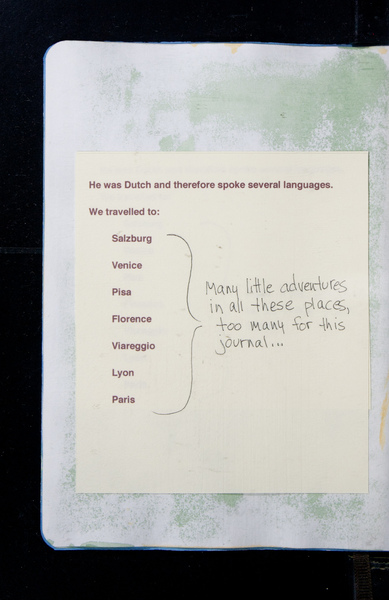 He was Dutch and therefore spoke several languages.
We travelled to:
Salzburg
Venice
Pisa
Florence
Viareggio
Lyon
Paris
Many little adventures
in all these places,
too many for this
journal...